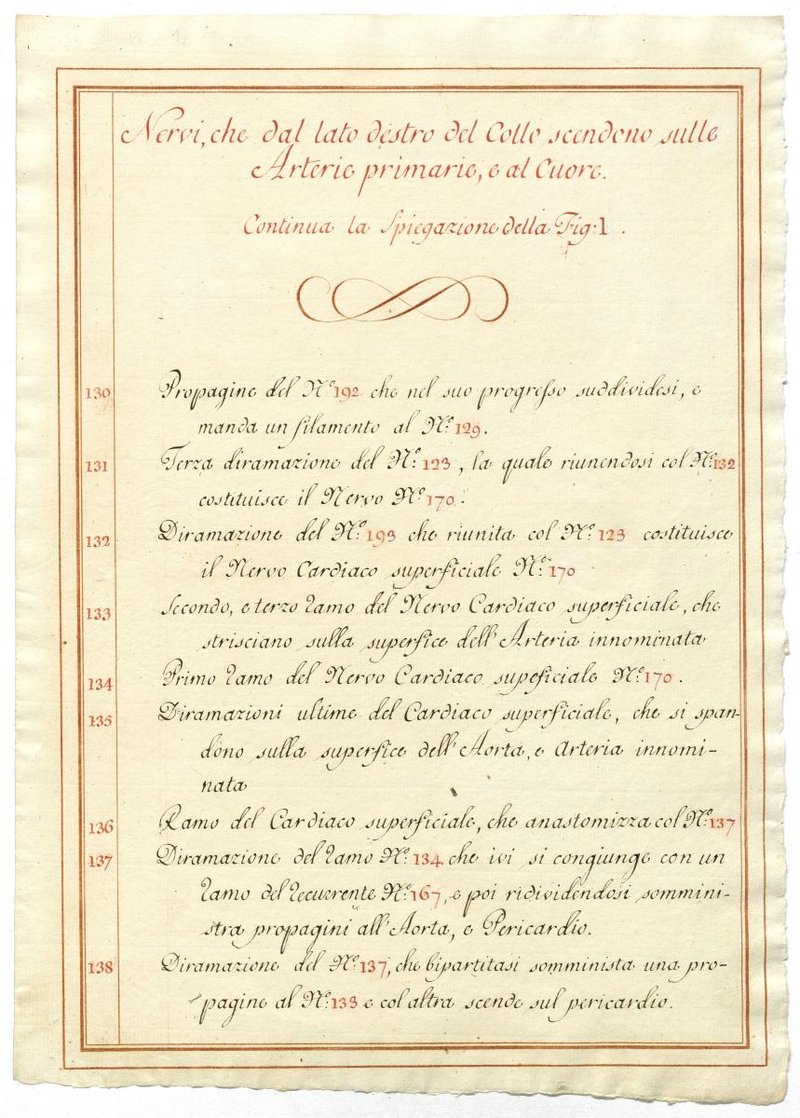 Nervi, che dal lato destro del Collo scendono sulle
Arterie primarie, e al Cuore.
Continua la Spiegazione della Fig: 1.
130 Propagine del N.º 192 che nel suo progresso suddividesi, e
manda un filamento al N.º 129.
131 Terza diramazione del N.º 123, la quale riunendosi col N.º 132
costituisce il Nervo N.º 170.
132 Diramazione del N.º 193 che riunita col N.º 123 costituisce
il Nervo Cardiaco superficiale N.º 170
133 Secondo, e terzo ramo del Nervo Cardiaco superficiale, che
strisciano sulla superfice dell'Arteria innominata
134 Primo ramo del Nervo Cardiaco supeficiale N.º 170.
135 Diramazioni ultime del Cardiaco superficiale, che si span-
dono sulla superfice dell'Aorta, e Arteria innomi-
nata
136 Ramo del Cardiaco superficiale, che anastomizza col N.º 137
137 Diramazione del ramo N.º 134 che ivi si congiunge con un
ramo del recurrente N.º 167, e poi ridividendosi sommini-
stra propagini all'Aorta, e Pericardio.
138 Diramazione del N.º 137, che bipartitasi somminista una pro-
pagine al N.º 133 e col altra scende sul pericardio.